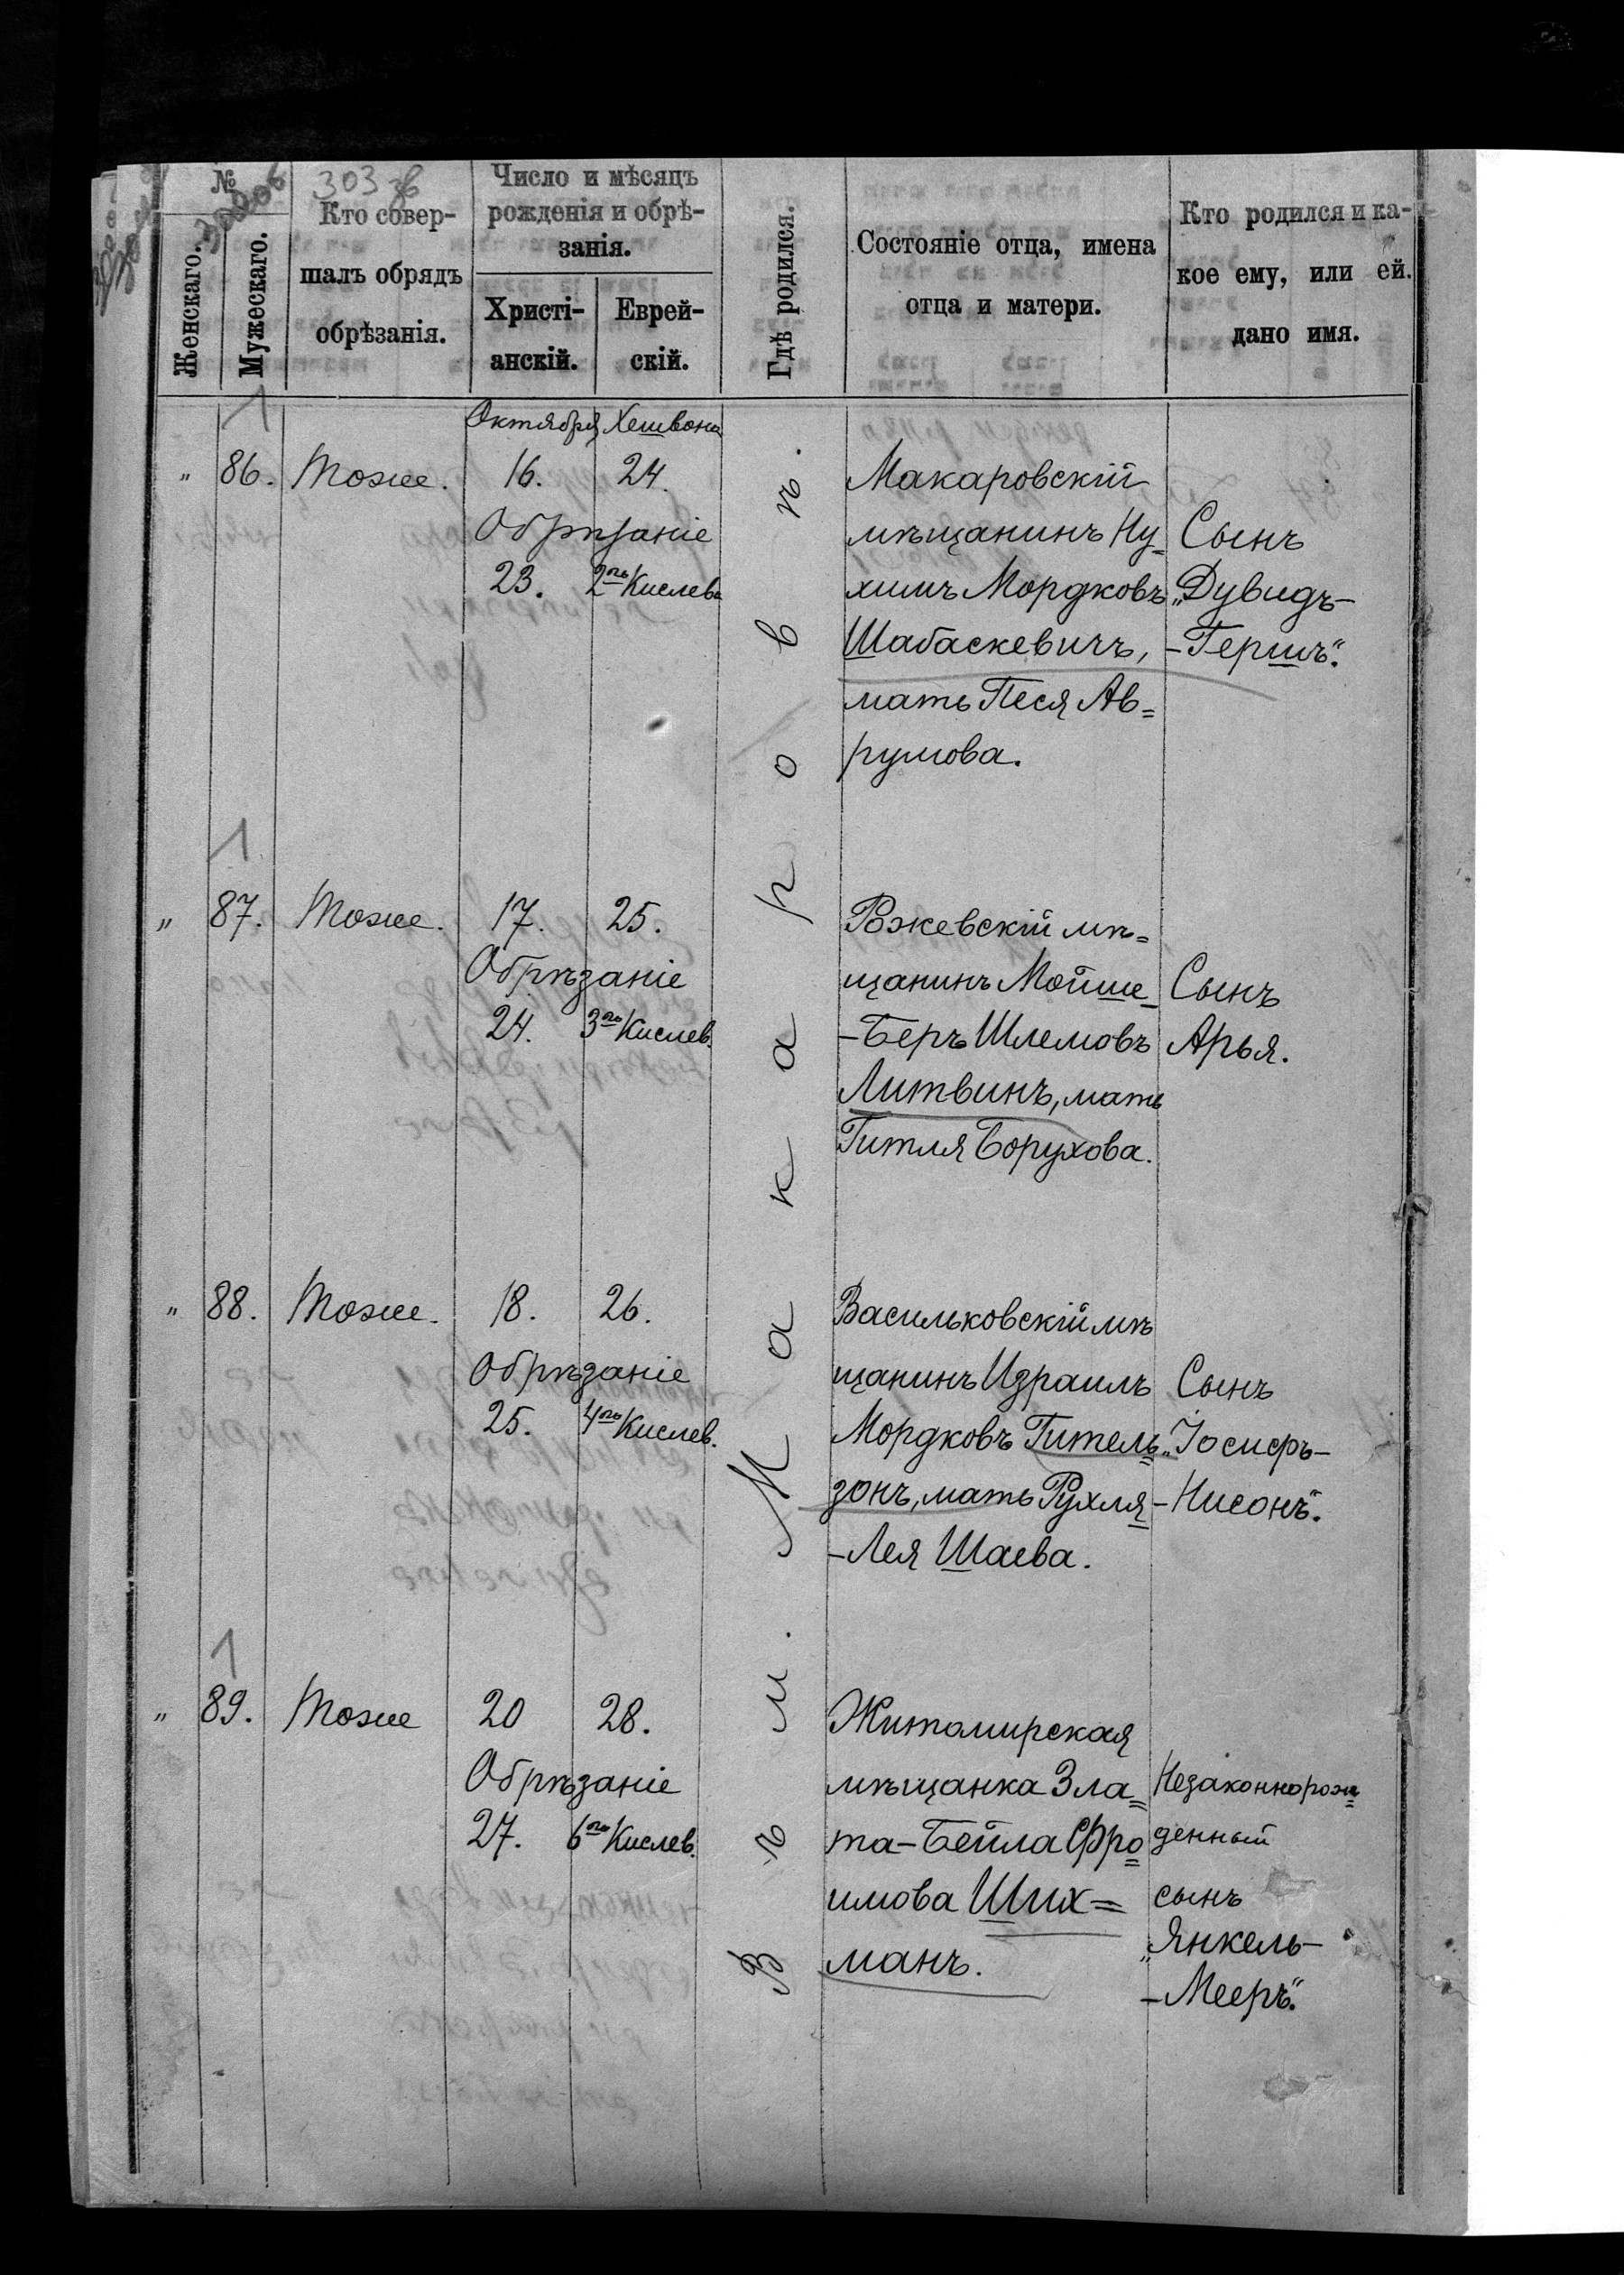 №
303 зв
Женскаго.
Мужескаго.
Кто совер-
шалъ обрядъ
обрѣзанія.
Число и мѣсяцъ
рожденія и обрѣ-
занія.
Христі-
анскій.
Еврей-
скій.
Гдѣ родился.
Состояніе отца, имена
отца и матери.
Кто родился и ка-
кое ему, или ей.
дано имя.
Въ м. Макаровѣ.
Октября Хешвона
„ 86. Тоже. 16. 24.
Обрѣзаніе
23. 2го Кислева
Макаровскій
мѣщанинъ Ну=
химъ Мордковъ
Шабаскевичъ,
мать Песя Ав=
румова.
Сынъ
„Дувидъ-
-Гершъ".
„ 87. Тоже. 17. 25.
Обрѣзаніе
24. 3го Кислев.
Ржевскій мѣ=
щанинъ Мойше-
-Беръ Шлемовъ
Литвинъ, мать
Гитля Борухова.
Сынъ
Арья.
„ 88. Тоже. 18. 26.
Обрѣзаніе
25. 4го Кислев.
Васильковскій мѣ
щанинъ Израиль
Мордковъ Гитель=
зонъ, мать Рухля-
-Лея Шаева.
Сынъ
„Іосифъ-
-Нисонъ".
„ 89. Тоже 20 28.
Обрѣзаніе
27. 6го Кислев.
Житомирская
мѣщанка Зла=
та-Бейла Фро=
имова Ших=
манъ.
Незаконнорож=
денный
сынъ
„Янкель-
-Мееръ".